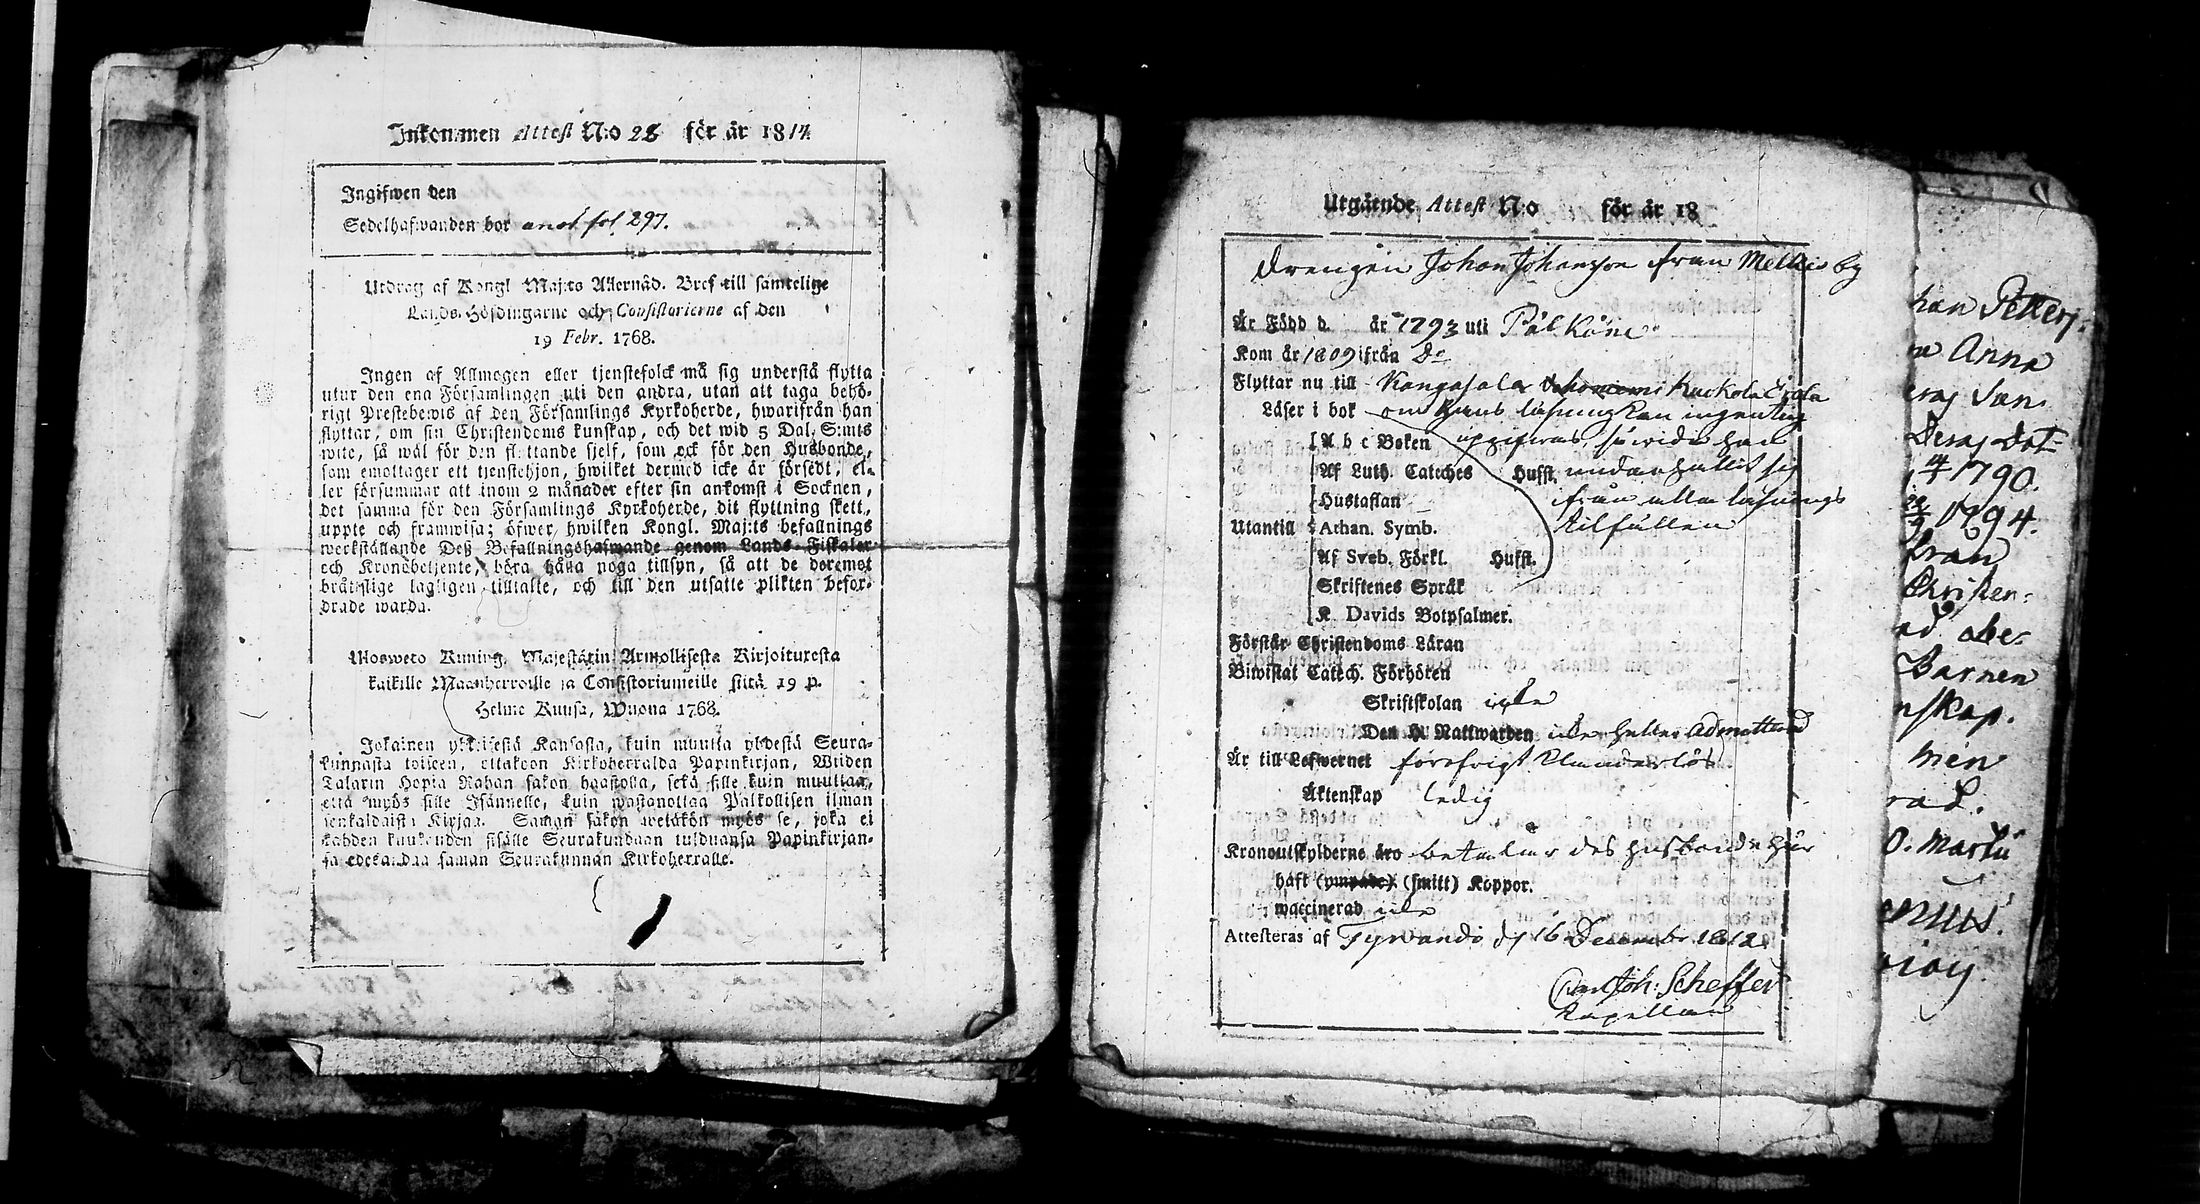 Inkommen Attest N:o 28 för år 1814
Ingifwen den
Sedelhafwanden bor anot fol 297.
Utdrag af Kongl Maj:ts Allernåd. Bref till samtelige
Lands-Höfdingarne och Consistorierne af den
19 Febr. 1768.
Ingen af Allmogen eller tjenstefolck må sig understå flytta
utur den ena Församlingen uti den andra, utan att taga behö-
rigt Prestebewis af den Församlings Kyrkoherde, hwarifrån han
flyttar, om sin Christendoms kunskap, och det wid 5 Dal. S:mts
wite, så wäl för den flyttande sjelf, som ock för den Husbonde,
som emottager ett tjenstehjon, hwilket dermed icke är försedt, el-
ler försummar att inom 2 månader efter sin ankomst i Socknen,
det samma för den Församlings Kyrkoherde, dit flyttning skett,
uppte och framwisa; öfwer hwilken Kongl. Maj:ts befallnings
werkställande Deß Befallningshafwande genom Lands-Fiskaler
och Kronobetjente, böra hålla noga tillsyn, så att de deremot
bråttslige lagligen tilltalte, och till den utsatte plikten befor-
drade warda.
Mosweto Kuning. Majestätin Armollisesta Kirjoituxesta
kaikille Maanherroille ja Consistoriumeille siitä 19 p.
Helme Kuusa, Wuona 1768.
Jokainen yhteisestä Kansasta, kuin muutta yhdestä Seura-
kunnasta toiseen, ottakoon Kirkoherralda Papinkirjan, Wiiden
Talarin Hopia Rahan sakon haastolla, sekä sille kuin muuttaa,
että myös sille Isännelle, kuin wastanottaa Palkollisen ilman
senkaldaista Kirjaa. Saman sakon wetäkön myös se, joka ei
kahden kuukauden sisälle Seurakundaan tulduansa Papinkirjan-
sa edesandaa saman Seurakunnan Kirkoherralle.
Utgående Attest N:o för år 18
Drengen Johan Johansson från Mellis by
Är Född d. år 1793 uti Pälkäne
Kom år 1809 ifrån Do
Flyttar nu till Kangasala Huckola Eräla
Läser i bok om hans läsning kan ingenting
A b c Boken uppgifwas, så wida han
Af Luth. Cateches Hufst. undanhållit sig
Hustaflan från alla läsnings
Utantill Athan. Symb. tillfällen
Af Sveb. Förkl. Hufst.
Skriftenes Språk
K. Davids Botpsalmer.
Förstår Christendoms Läran
Biwistat Catech. Förhören
Skriftskolan icke
Den H. Nattwarden icke heller admitterad
Är till Lefwernet för öfrigt klanderlös
Äktenskap ledig
Kronoutskylderne äro betalar des husbonde här
haft (ympade) (smitt) Koppor.
waccinerad icke
Attesteras af Tyrwändö d 16 December 1812
Carl Joh: Scheffer
Kapellan
han Petters-
Anna
Dot-
1790.
1794.
från
Christen-
Barnen
nskap.
men
rad.
O. Martii